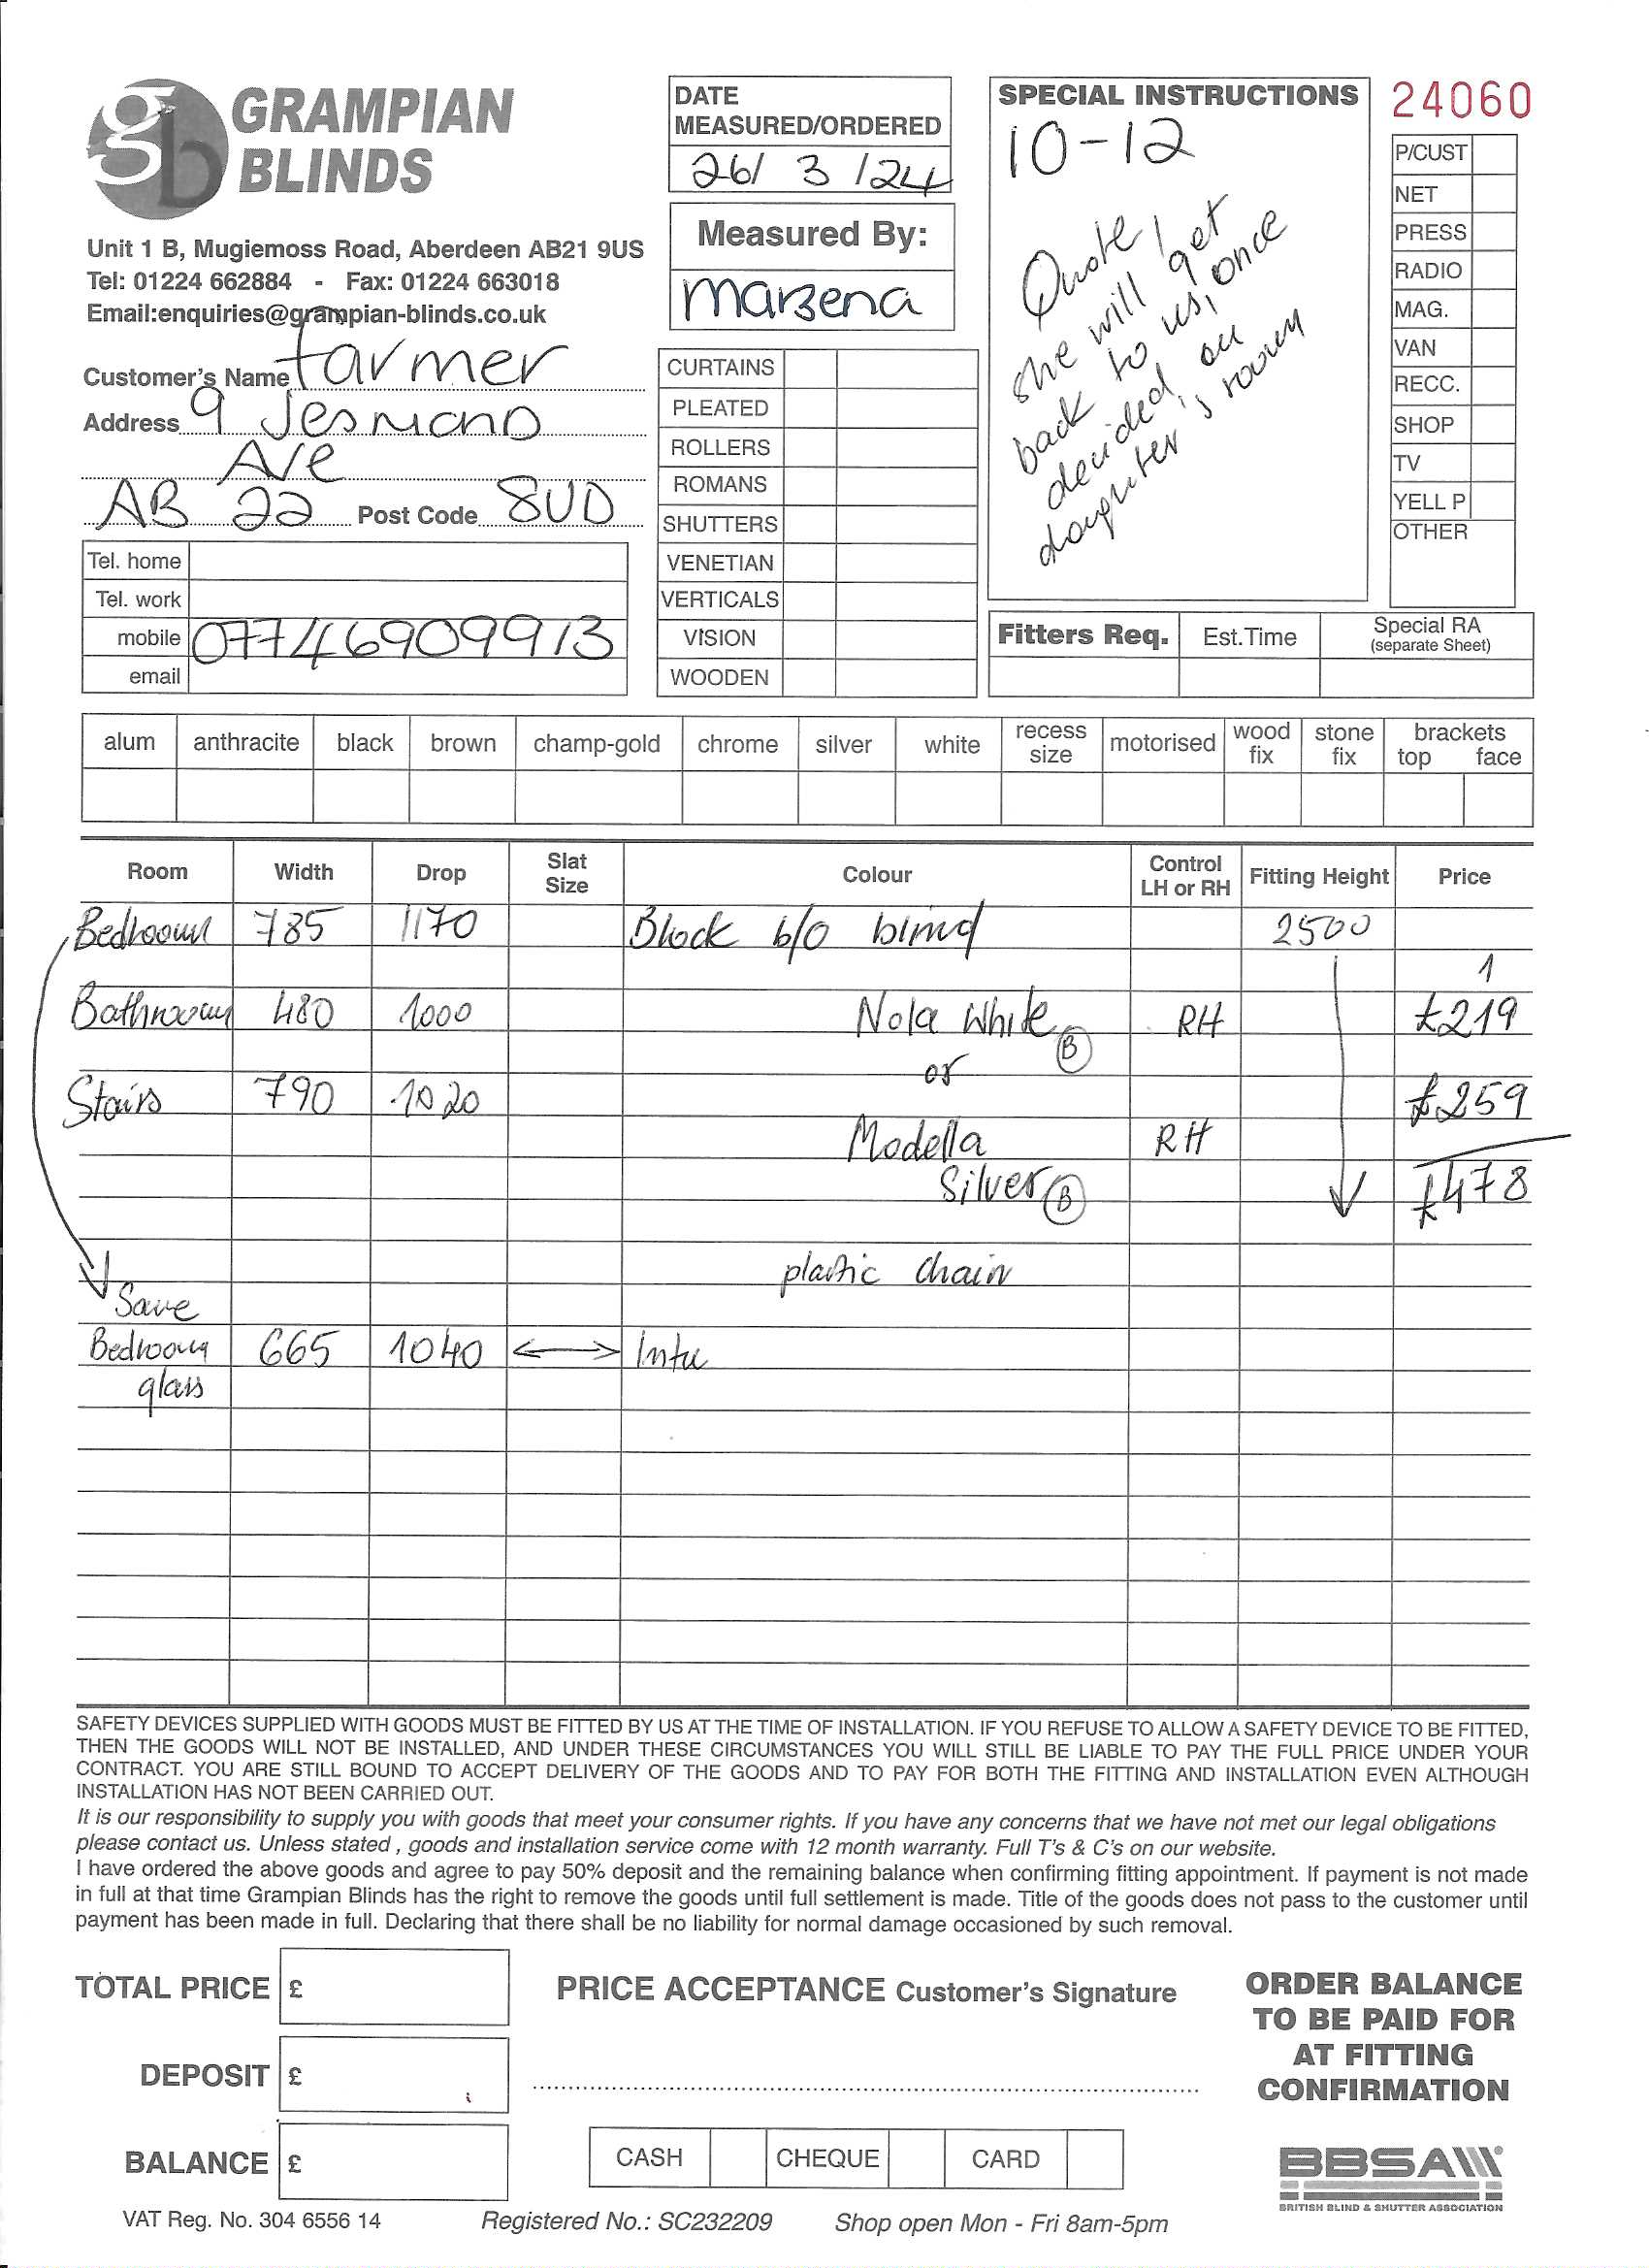 GRAMPIAN
BLINDS
Unit 1 B, Mugiemoss Road, Aberdeen AB21 9US
Tel: 01224 662884 - Fax: 01224 663018
Email:enquiries@grampian-blinds.co.uk
Customer's Name Farmer
Address 9 Jesmond
Ave
AB 22 Post Code 8UD
Tel. home
Tel. work
mobile 07746909913
email
DATE
MEASURED/ORDERED
26/ 3 /24
Measured By:
Marzena
CURTAINS
PLEATED
ROLLERS
ROMANS
SHUTTERS
VENETIAN
VERTICALS
VISION
WOODEN
SPECIAL INSTRUCTIONS
10-12
Quote!
she will get
back to us, once
decided on
daughter's room
24060
P/CUST
NET
PRESS
RADIO
MAG.
VAN
RECC.
SHOP
TV
YELL P
OTHER
Fitters Req. Est.Time Special RA
(separate Sheet)
alum anthracite black brown champ-gold chrome silver white recess size motorised wood fix stone fix brackets top face
Room Width Drop Slat Size Colour Control LH or RH Fitting Height Price
Bedroom 785 1170 Block b/o blind 2500
1
Bathroom 480 1000 Nola White B RH £219
or
Stairs 790 1020 £259
Modella RH
Silver B £478
plastic chain
Same
Bedroom 665 1040 Intu
glass
SAFETY DEVICES SUPPLIED WITH GOODS MUST BE FITTED BY US AT THE TIME OF INSTALLATION. IF YOU REFUSE TO ALLOW A SAFETY DEVICE TO BE FITTED,
THEN THE GOODS WILL NOT BE INSTALLED, AND UNDER THESE CIRCUMSTANCES YOU WILL STILL BE LIABLE TO PAY THE FULL PRICE UNDER YOUR
CONTRACT. YOU ARE STILL BOUND TO ACCEPT DELIVERY OF THE GOODS AND TO PAY FOR BOTH THE FITTING AND INSTALLATION EVEN ALTHOUGH
INSTALLATION HAS NOT BEEN CARRIED OUT.
It is our responsibility to supply you with goods that meet your consumer rights. If you have any concerns that we have not met our legal obligations
please contact us. Unless stated , goods and installation service come with 12 month warranty. Full T's & C's on our website.
I have ordered the above goods and agree to pay 50% deposit and the remaining balance when confirming fitting appointment. If payment is not made
in full at that time Grampian Blinds has the right to remove the goods until full settlement is made. Title of the goods does not pass to the customer until
payment has been made in full. Declaring that there shall be no liability for normal damage occasioned by such removal.
TOTAL PRICE £
DEPOSIT £
BALANCE £
PRICE ACCEPTANCE Customer's Signature
CASH CHEQUE CARD
ORDER BALANCE
TO BE PAID FOR
AT FITTING
CONFIRMATION
BBSA
BRITISH BLIND & SHUTTER ASSOCIATION
VAT Reg. No. 304 6556 14 Registered No.: SC232209 Shop open Mon - Fri 8am-5pm